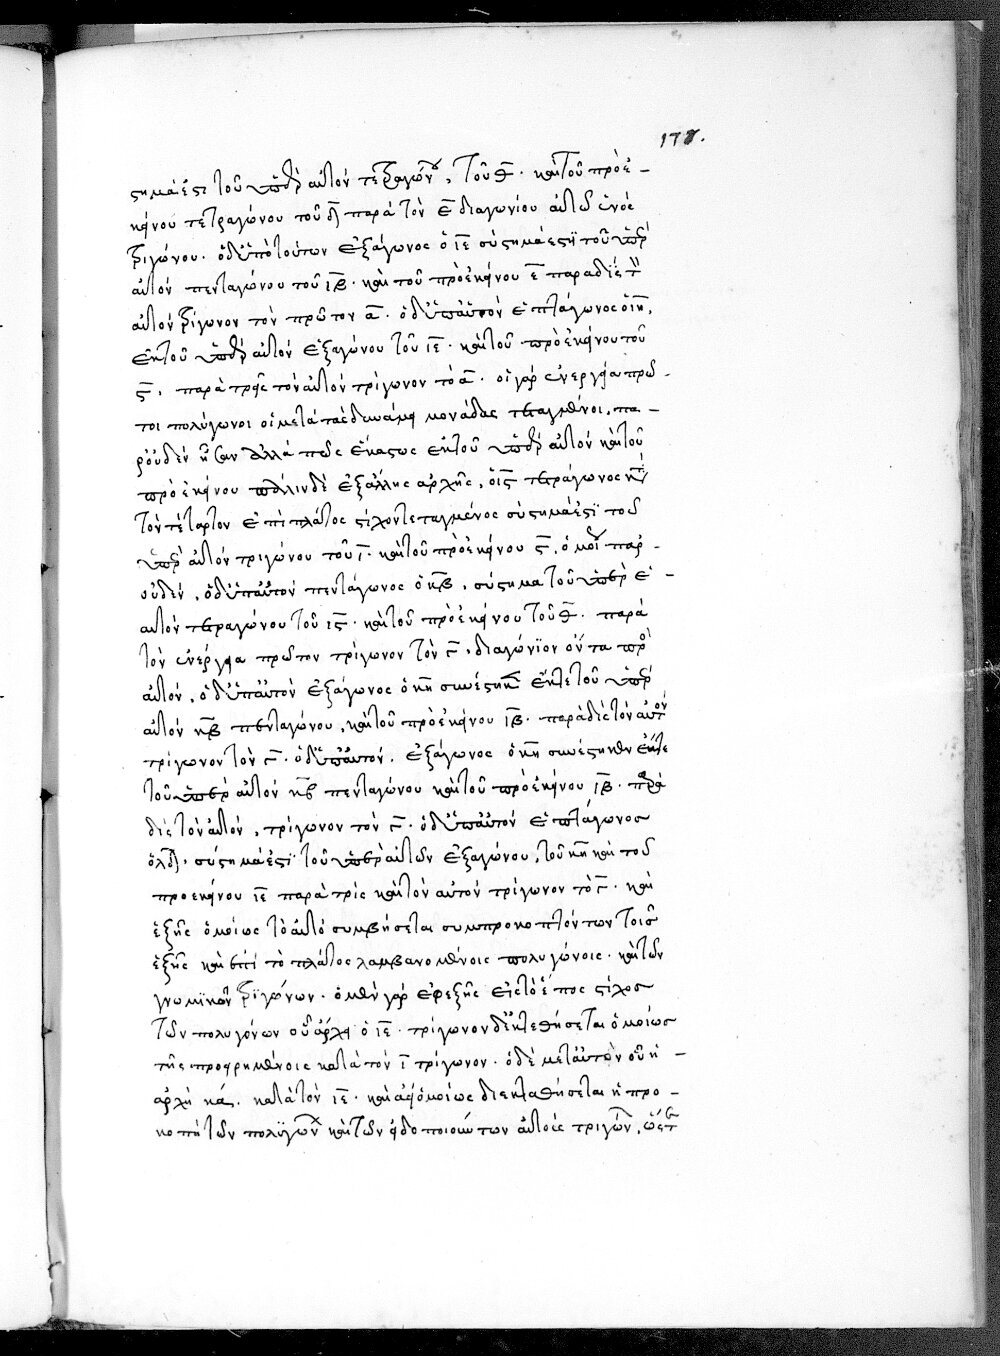 178.
στημά ἐστι τοῦ ὑπὲρ αὐτὸν τετραγώνου, τοῦ θ̅. καὶ τοῦ πρὸ ἐ-
κείνου τετραγώνου τοῦ δ̅ παρὰ τὸν ε̅ διαγωνίου αὐτῶ ἑνὸς
τριγώνου. ὁ δ' ὑπὸ τούτων ἑξάγωνος ὁ ιε̅ σύστημά ἐστι τοῦ ὑπὲρ
αὐτὸν πενταγώνου τοῦ ιβ̅. καὶ τοῦ πρὸ ἐκείνου ε̅ παρὰ δὶς τὸν
αὐτὸν τρίγωνον τὸν πρῶτον α̅. ὁ δ' ὑπ' αὐτὸν ἑπτάγωνος ὁ ιη̅,
ἐκ τοῦ ὑπὲρ αὐτὸν ἑξαγώνου τοῦ ιε̅. καὶ τοῦ πρὸ ἐκείνου τοῦ
ς̅, παρὰ τρὶς τὸν αὐτὸν τρίγωνον τὸ α̅. οἱ γὰρ ἐνεργεία πρῶ-
τοι πολύγωνοι οἱ μετὰ τὰς δυνάμει μονάδας τεταγμένοι, πα-
ρ' οὐδὲν ἦσαν ἀλλά πως ἕκαστος ἐκ τοῦ ὑπὲρ αὐτὸν καὶ τοῦ
πρὸ ἐκείνου πάλιν δὲ ἐξ ἄλλης ἀρχῆς, ὁ ις̅ τετράγωνος κατὰ
τὸν τέταρτον ἐπὶ πλάτος στίχον τεταγμένος σύστημά ἐστι τοῦ
ὑπὲρ αὐτὸν τριγώνου τοῦ ι̅. καὶ τοῦ πρὸ ἐκείνου ς̅, ὁμοῦ παρ'
οὐδέν, ὁ δ' ὑπ' αὐτὸν πεντάγωνος ὁ κβ̅, σύστημα τοῦ ὑπὲρ ἑ-
αυτὸν τετραγώνου τοῦ ις̅. καὶ τοῦ πρὸ ἐκείνου τοῦ θ̅. παρὰ
τὸν ἐνεργεία πρῶτον τρίγωνον τὸν γ̅, διαγώνϊον ὄντα πρὸς
αὐτόν, ὁ δ' ὑπ' αὐτὸν ἑξάγωνος ὁ κη̅ συνέστηκεν ἔκ τε τοῦ ὑπὲρ
αὐτὸν κβ̅ πενταγώνου, καὶ τοῦ πρὸ ἐκείνου ιβ̅. παρὰ δὶς τὸν αὐτὸν
τρίγωνον τὸν γ̅. ὁ δ' ὑπ' αὐτόν, ἑξάγωνος ὁ κη̅ συνέστηκεν ἔκ τε
τοῦ ὑπὲρ αὐτὸν κβ̅ πενταγώνου καὶ τοῦ πρὸ ἐκείνου ιβ̅. παρὰ
δὶς τὸν αὐτόν, τρίγωνον τὸν γ̅. ὁ δ' ὑπ' αὐτὸν ἑπτάγωνος
ὁ λδ̅, σύστημά ἐστι τοῦ ὑπὲρ αὐτῶν ἑξαγώνου, τοῦ κη̅ καὶ τοῦ
προεκείνου ιε̅ παρὰ τρὶς καὶ τὸν αὐτὸν τρίγωνον τὸ γ̅. καὶ
ἑξῆς ὁμοίως τὸ αὐτὸ συμβήσεται συμπροκοπτόντων τοῖς
ἑξῆς καὶ ἐπὶ τὸ πλάτος λαμβανομένοις πολυγώνοις. καὶ τῶν
γνωμικῶν τριγώνων. ὁ μὲν γὰρ ἐφεξῆς εἰς τὸ ἔπος στίχος
τῶν πολυγόνων οὗ ἀρχὴ ὁ ιε̅. τρίγωνον δεκτεθήσεται ὁμοίως
τῆς προειρημένοις κατὰ τὸν ι̅ τρίγωνον. ὁ δὲ μετ' αὐτὸν οὗ ἡ -
ἀρχὴ κα̅. κατὰ τὸν ιε̅. καὶ ἀεὶ ὁμοίως διεκταθήσεται ἡ προ-
κοπὴ τῶν πολυγώνων καὶ τῶν εἰδοποιούντων αὐτοὺς τριγώνων, ὥστε